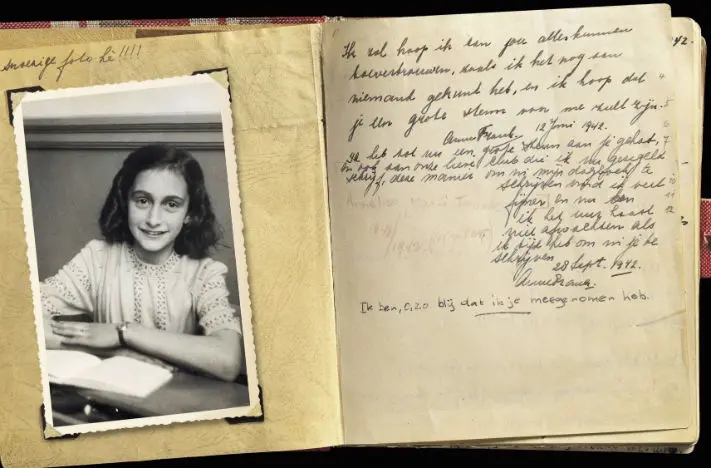 snoezige foto hè!!!!
Ik zal hoop ik aan jou alles kunnen
toevertrouwen, zoals ik het nog aan
niemand gekunt heb, en ik hoop dat
je een grote steun voor me zult zijn.
Anne Frank. 12 Juni 1942.
Ik heb tot nu een grote steun aan je gehad,
en ook aan onze lieve club die ik nu geregeld
schrijf, deze manier om in mijn dagboek te
schrijven vind ik veel
fijner en nu kan
ik het uur haast
niet afwachten als
ik tijd heb om in je te
schrijven.
28 Sept. 1942.
Anne Frank.
Ik ben, o, zo blij dat ik je meegenomen heb.
42.